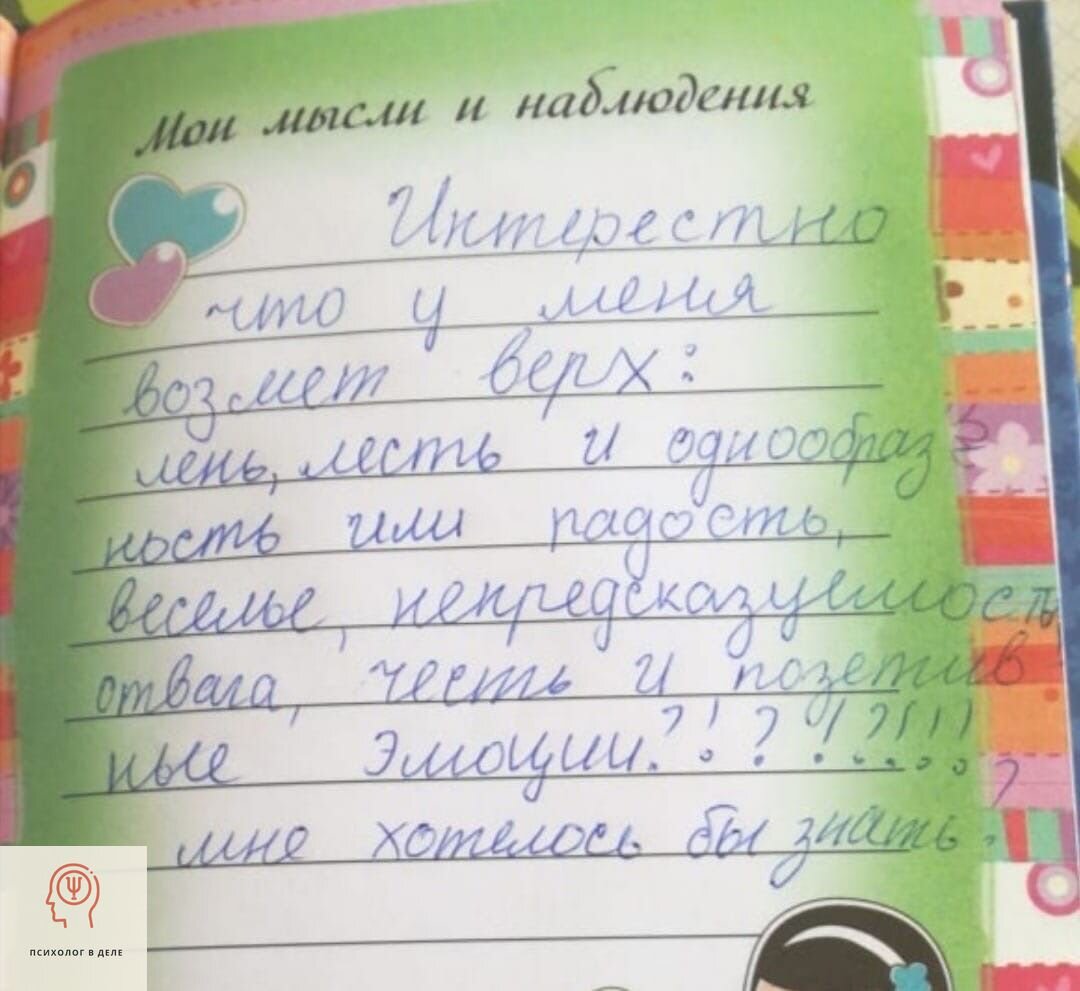 Мои мысли и наблюдения
Интерестно
что у меня
возмет верх:
лень, лесть и однообраз
ность или радость,
веселье, непредсказуемость
отвага, честь и позетив
ные эмоции.?!?!?!!!
мне хотелось бы знать.
ПСИХОЛОГ В ДЕЛЕ